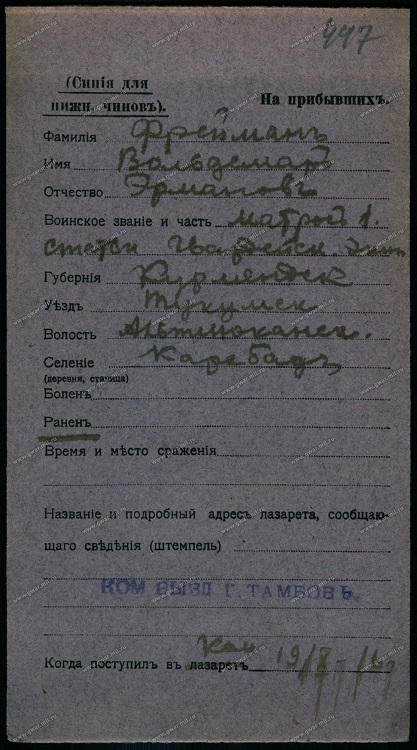 447
(Синія для
нижн. чиновъ).
На прибывшихъ.
Фамилія Фрейманъ
Имя Вольдемар
Отчество Эрмановъ
Воинское званіе и часть матрой 1.
статьи Гвардейск. Экип
Губернія Курляндск
Уѣздъ Тукумск
Волость
Селеніе Карсбадъ
(деревня, станица)
Боленъ
Раненъ
Время и мѣсто сраженія
Названіе и подробный адресъ лазарета, сообщаю-
щаго свѣдѣнія (штемпель)
КОМ ВЫЗД Г. ТАМБОВЪ.
Когда поступилъ въ лазаретъ 19
www.gwar.mil.ru